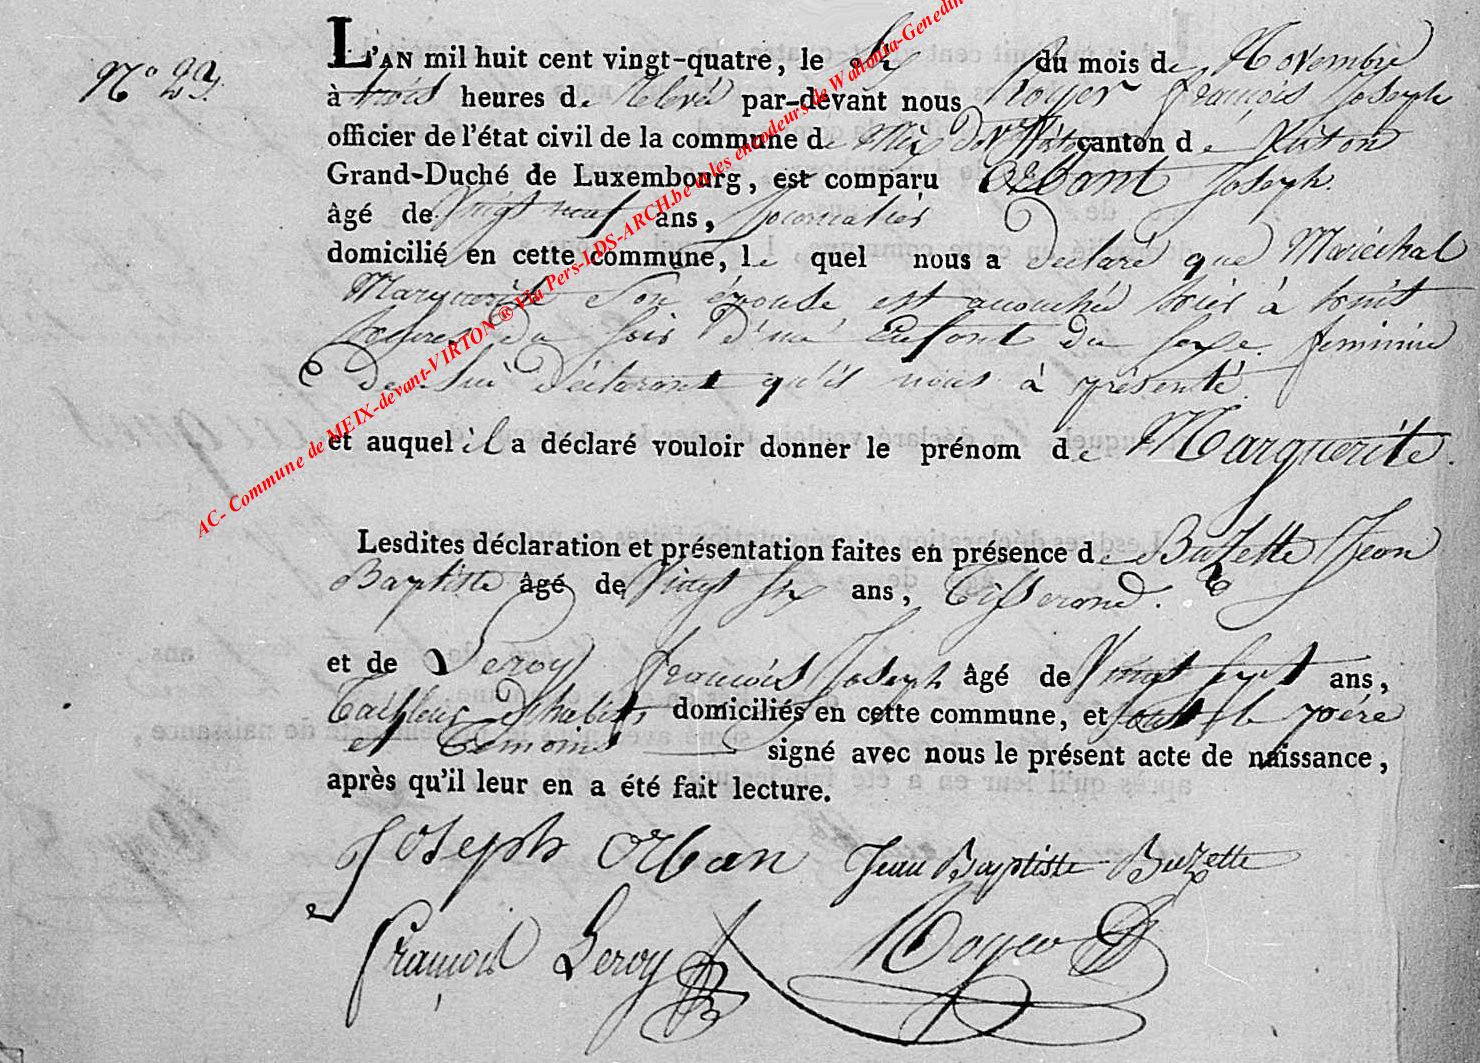 N.° 29.
L'AN mil huit cent vingt-quatre, le six du mois de Novembre
à trois heures de relevé par-devant nous Royer françois Joseph
officier de l'état civil de la commune de Meix dvt Virton canton de Virton
Grand-Duché de Luxembourg, est comparu Orban Joseph.
âgé de Vingt neuf ans, Journalier
domicilié en cette commune, le quel nous a declaré que Maréchal
Marguerite son épouse est accouchée hier à huit
heures du soir d'un Enfant du sexe feminin
de lui déclarant qu'il nous à présenté
et auquel il a déclaré vouloir donner le prénom de Marguerite.
Lesdites déclaration et présentation faites en présence de Buzette Jean
Baptiste âgé de Vingt six ans, Tisserand.
et de Leroy françois Joseph âgé de Vingt sept ans,
Tailleur d'habits, domiciliés en cette commune, et ont le père
et temoins signé avec nous le présent acte de naissance,
après qu'il leur en a été fait lecture.
Joseph Orban Jean Baptiste Buzette
françois Leroy Royer
AC- Commune de MEIX-devant-VIRTON ® Via Pers-LDS-ARCH.be et les encodeurs de Wallonia-Genedin